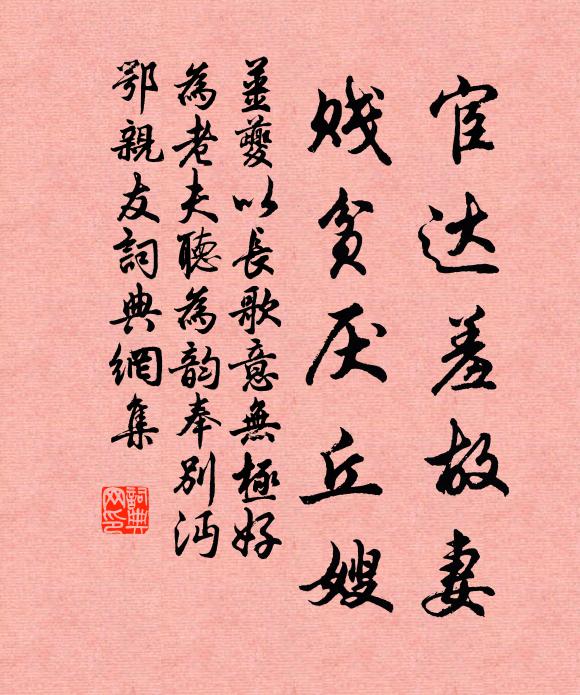 宦达羞故妻
贱贫厌丘嫂
薑夔以長歌意無極好
為老夫聽為韵奉別沔
鄂親友詞典網集
詞典网印